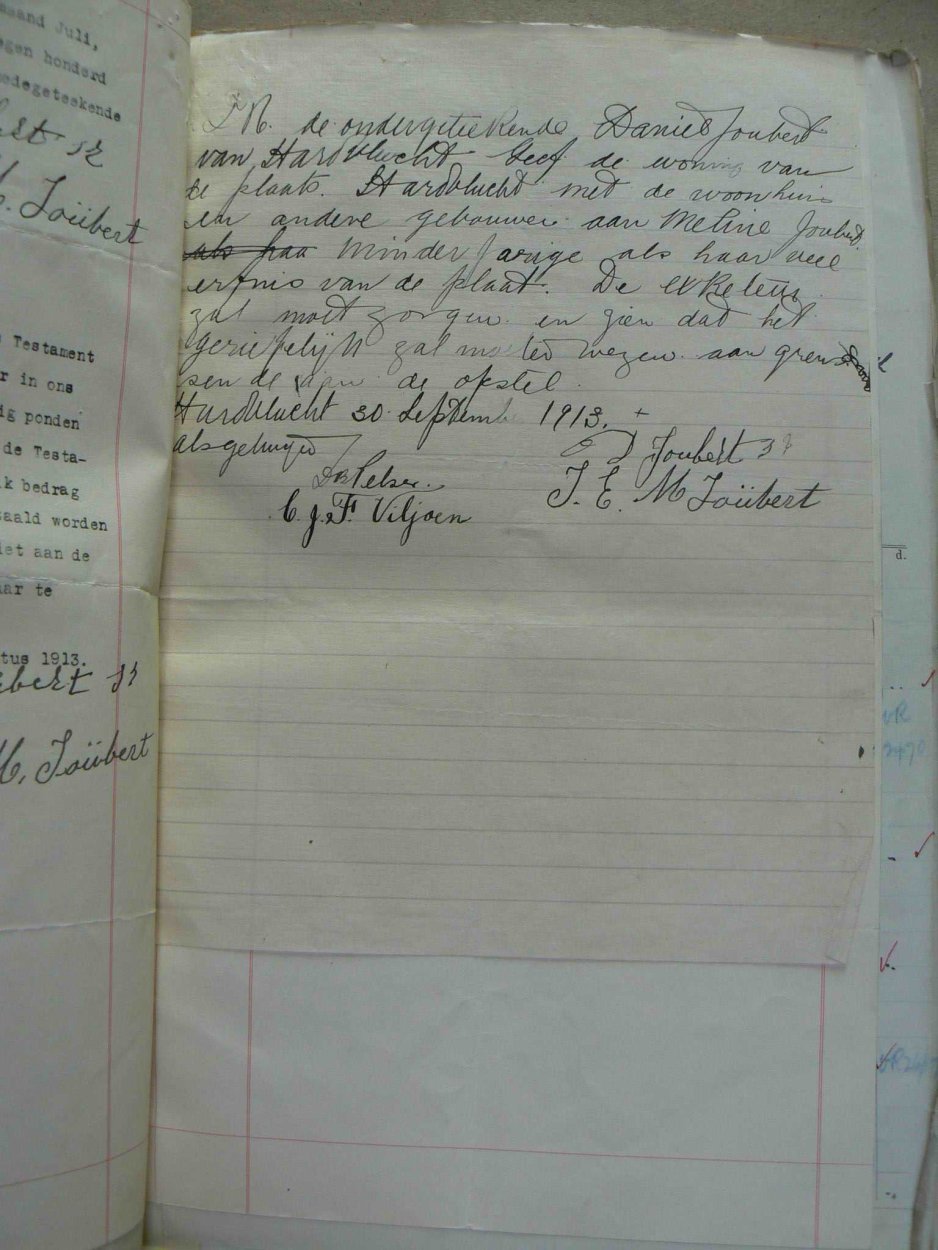 asand Juli,
egen honderd
edegeteekende
J. Joübert
Testament
r in ons
ig ponden
de Testa-
k bedrag
taald worden
iet aan de
aar te
tus 1913.
bert
M, Joübert
IK. de ondergeteekende Daniel Joubert
van Hardvlucht Geef de woning van
de plaats. Hardvlucht met de woonhuis
en andere gebouwen aan Meline Joubert
als haa Minder Jarige als haar deel
erfnis van de plaat. De
zal moet zorgen en zien dat het
geriefelijk zal wezen aan
sen de de opstel
Hardvlucht 30 September 1913.
Als getuigen
D Joubert
Pelser.
J. E. M Joübert
C. J. F. Viljoen
d.